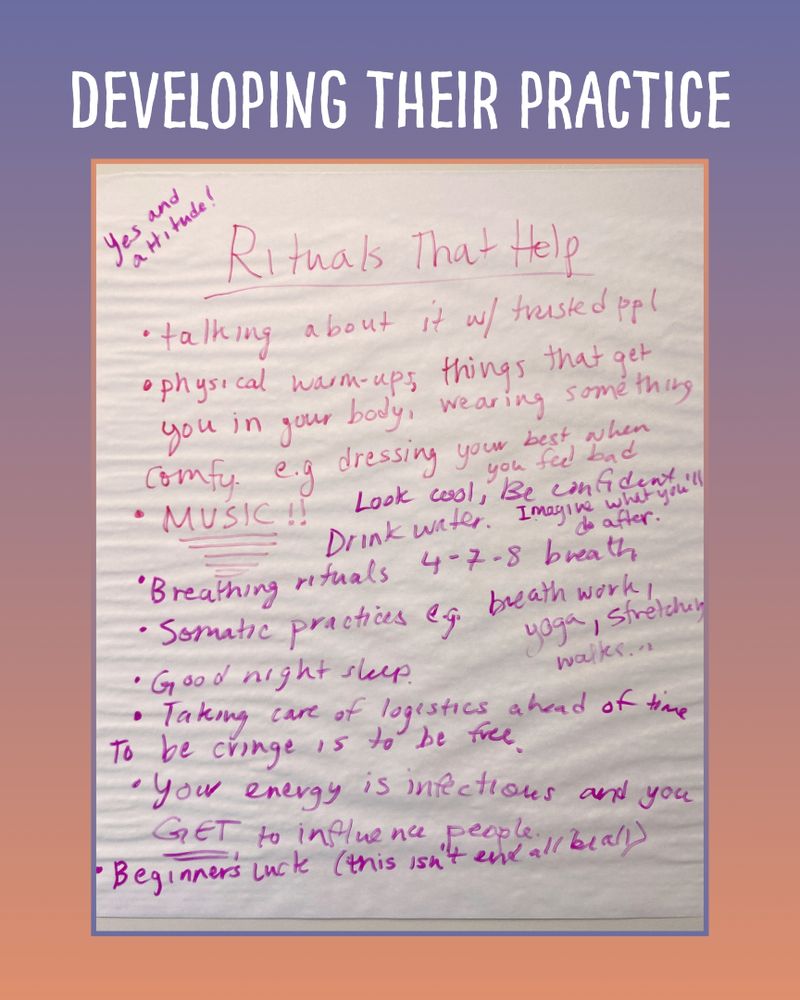 DEVELOPING THEIR PRACTICE
Yes and
attitude!
Rituals That Help
• talking about it w/ trusted ppl
• physical warm-ups, things that get
you in your body, wearing something
comfy. e.g dressing your best when
you feel bad
• MUSIC!!
Look cool, Be confident
Drink water.
Imagine what you'll
do after.
• Breathing rituals 4-7-8 breath
• Somatic practices e.g. breath work,
yoga, stretching
walks...
• Good night sleep.
• Taking care of logistics ahead of time
To be cringe is to be free.
• Your energy is infectious and you
GET to influence people.
• Beginner's Luck (this isn't end all be all)